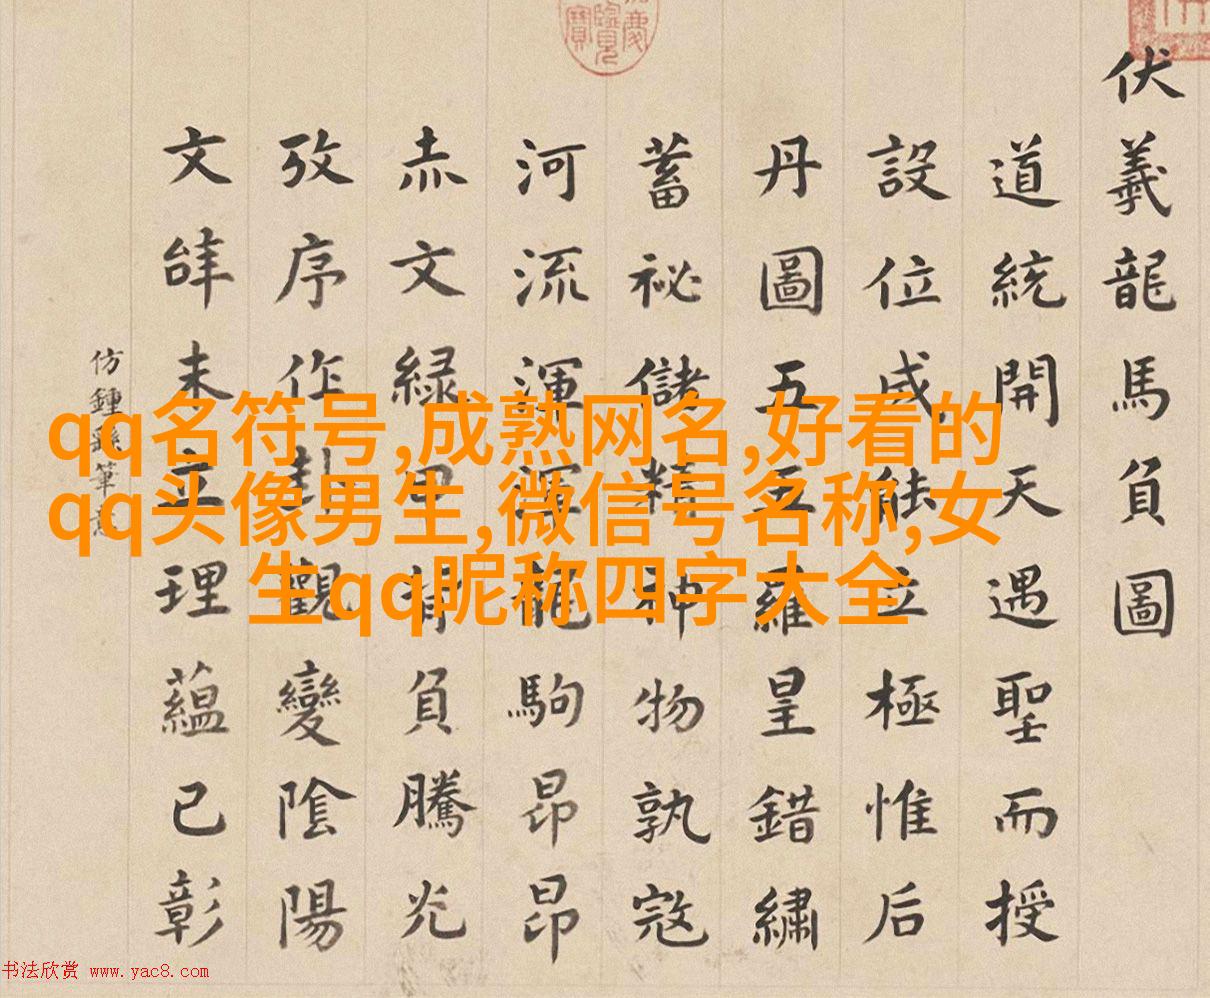 伏羲龍馬負圖
道統開天遇聖而授
設位成能立極惟后
丹圖五五羅皇錯繡
蓄祕儲精神物孰寇
河流渾渾龍駒昂昂
赤文綠甲背負騰光
攷序作卦觀變陰陽
文辝未立理蘊已彰
仿鍾繇筆意
qq名符号,成熟网名,好看的
qq头像男生,微信号名称,女
生qq昵称四字大全
书法欣赏 www.yac8.com